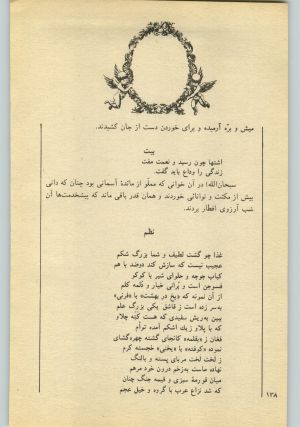 میش و بره آرمیده و برای خوردن دست از جان کشیدند.
بیت
اشتها چون رسید و نعمت مفت
زندگی را وداع باید گفت.
سبحان‌الله! در آن خوانی که مملو از مائدهٔ آسمانی بود چنان که دانی
بیش از مکنت و توانائی خوردند و همان قدر باقی ماند که پیشخدمت‌ها آن
شب آرزوی افطار بردند.
نظم
غذا چو گشت لطیف و شما بزرگ شکم
عجیب نیست که سازش کند دوضد با هم
کباب جوجه و حلوای شیر با کوکو
فسوجن است و بُرانی خیار و قلمه کلم
از آن نمونه که «یخ در بهشت» با «فرنی»
به‌سر زده است ز قاشق یکی بزرگ علم
ببین به‌ریش سفیدی که هست کپّه چلاو
که با پلاو ز یك اشکم آمده توأم
فغان ز «بقلمه» کانجای گشته چهره‌گشای
نموده «کوفته» با «یخنی» خجسته کرم
ز لخت لخت مربای پسته و بالنگ
نهاده ماست به‌زخم درون خود مرهم
میان قورمهٔ سبزی و قیمه جنگ چنان
که شد نزاع عرب با گروه و خیل عجم
۱۳۸